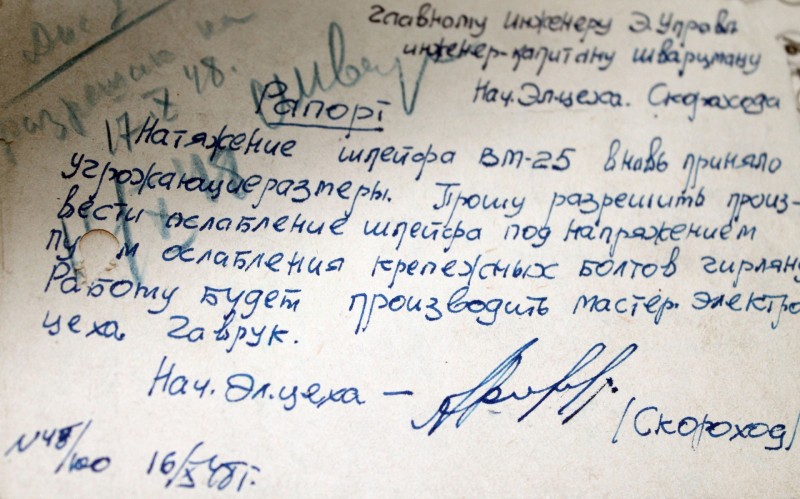 Главному инженеру Э.Управл
инженер-капитану Шварцману
Нач.Эл.цеха. Скорохода
разрешаю на
48.
Рапорт
17 X
Натяжение шлейфа ВМ-25 вновь приняло
угрожающие размеры. Прошу разрешить произ-
вести ослабление шлейфа под напряжением
пу м ослабления крепежных болтов гирлянд
Работу будет производить мастер электро
цеха Гаврук.
Нач. Эл.цеха —
/Скороход/
N48/100 16/X 48г.